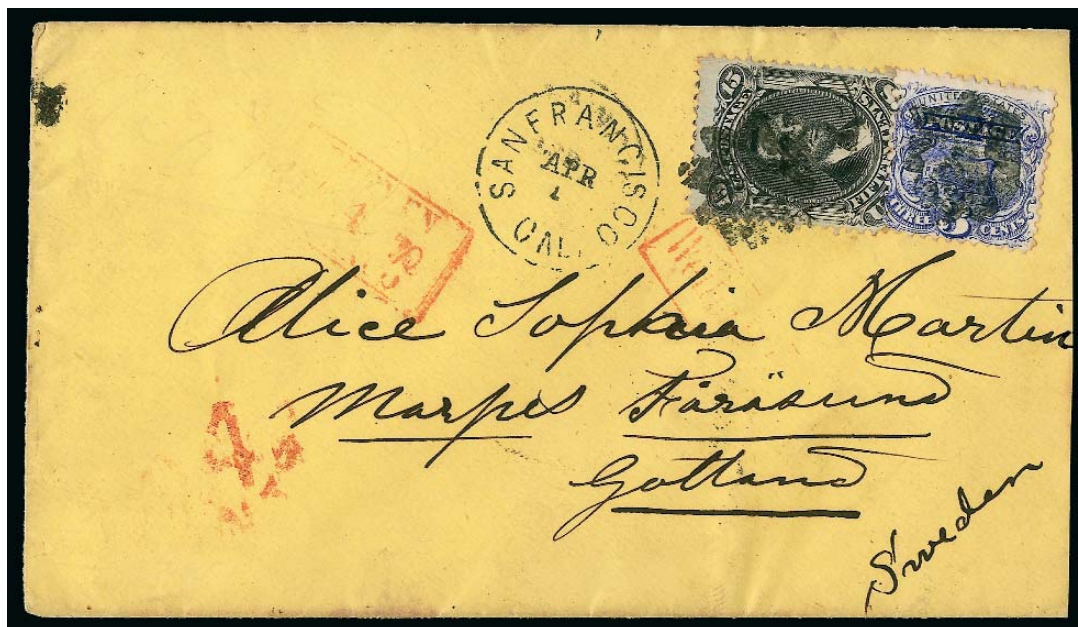 SAN FRANCISCO
APR
CAL.
15
UNITED STATES
POSTAGE
THREE 3 CENTS
Alice Sophia Martin
Marpes Fårösund
Gottland
Sweden
4